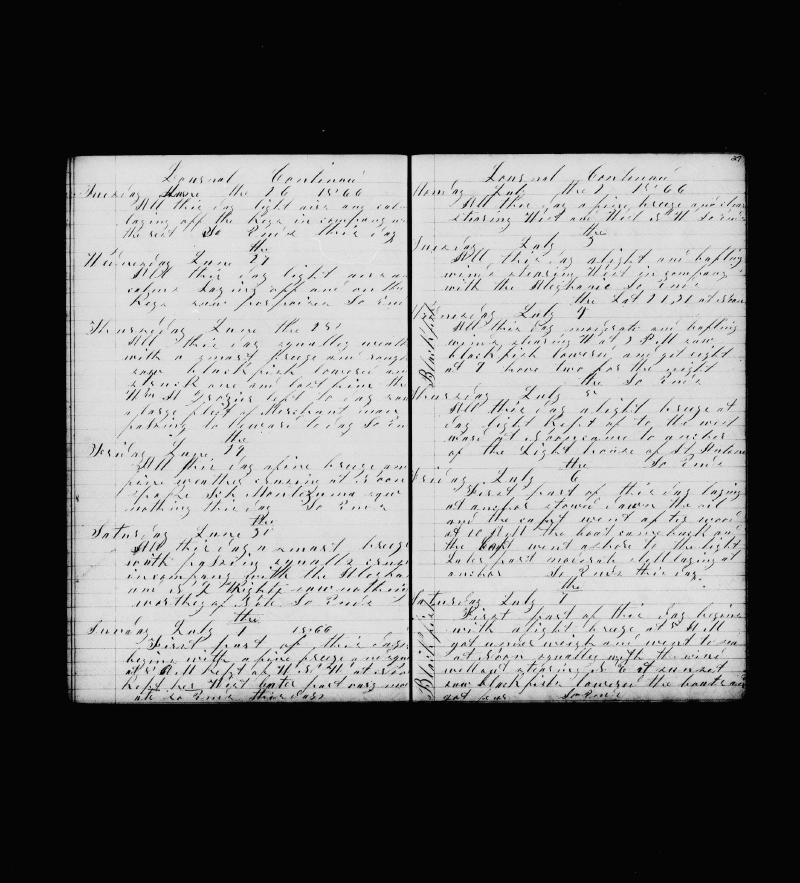 Journal Continued
Tuesday June the 26 1866
All this day light airs and cal
laying off the Keys in company w
the rest So Ends this day
the
Wednesday June 27
All this day light airs an
calms laying off and on the
Keys saw porpoises So En
Thursday June the 28
All this day squally weath
with a smart breeze and rough
saw blackfish lowered an
struck one and lost him the
Wm A Grozier left to day saw
a large fleet of Merchant men
passing to leward to day So En
the
Friday June 29
All this day a fine breeze an
fine weather cruising at noon
spoke Sch Montezuma saw
nothing this day So Ends
the
Saturday June 30
All this day a smart breeze
with passing squalls cruis
in company with the Allegha
and saw nothin
worthy of So Ends
the
Sunday July 1 1866
First part of this day
begins with a fine breeze and
at 5 AM kept of W S W at noo
kept her West later part
So Ends this day
37
Journal Continued
Monday July the 2 1866
All this day a fine breeze and clear
stearing West and West S W So Ends
the
Tuesday July 3
All this day a light and bafling
winds stearing West in company
with the Aleghania So Ends
the Lat 21.21 at noon
Wednesday July 4
Blackfish
All this day moderate and bafling
winds stearing W at 3 P M saw
blackfish lowered and got eight
at 7 hove two for the night
the So Ends
Thursday July 5
All this day a light breeze at
day light kept of to the west
ward at noon came to anchor
of the Light house of
the So Ends
Friday July 6
First part of this day laying
at anchor stowed down the oil
and the capt went after wood
at 10 A M the boat came back and
the capt went ashore to the light
Later part moderate still laying at
anchor So Ends this day
the
Saturday July 7
Blackfish
First part of this day begins
with a light breeze at 5 A M
got under weigh and went to sea
at noon squally with the wind
stearing at sunset
saw blackfish lowered the boats and
got So Ends